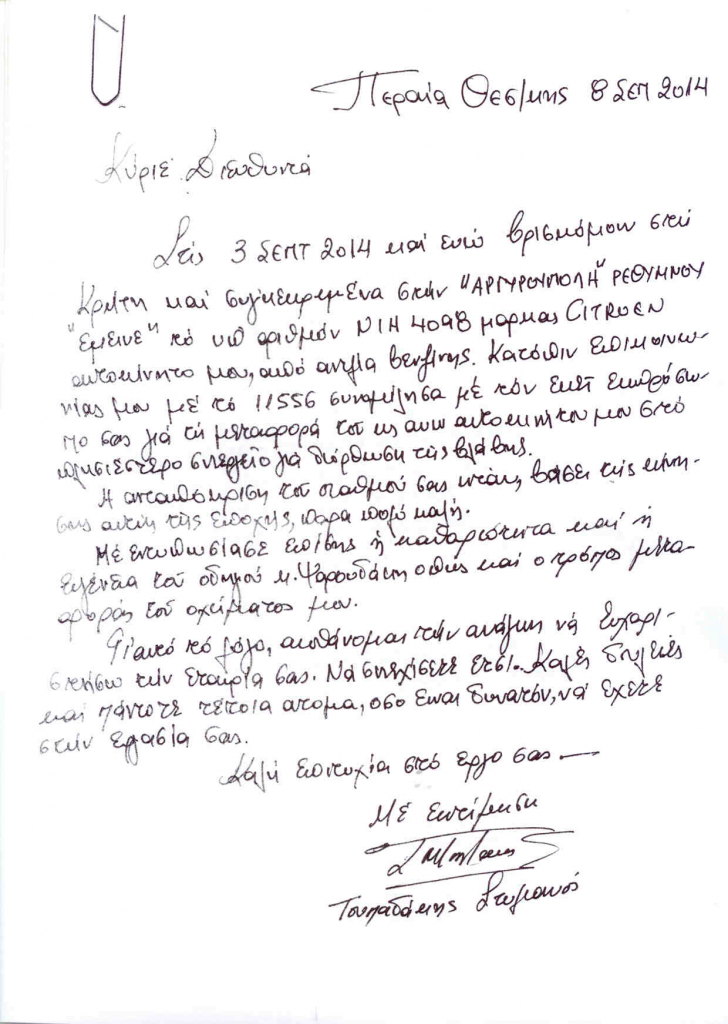 Περαία Θεσ/κης 8 ΣΕΠ 2014
Κύριε Διευθυντά
Στις 3 ΣΕΠΤ 2014 και ενώ βρισκόμουν στην
Κρήτη και συγκεκριμένα στην "ΑΡΓΥΡΟΥΠΟΛΗ" ΡΕΘΥΜΝΟΥ
"έμεινε" το υπ αριθμόν ΝΙΗ 4098 μάρκας CITROEN
αυτοκίνητο μου, από αντλία βενζίνης. Κατόπιν επικοινω-
νίας μου μέ τό 11556 συνομίλησα μέ τόν εκεί εκπρόσω-
πο σας γιά τη μεταφορά του ως ανω αυτοκινητου μου στό
πλησιέστερο συνεργείο γιά διόρθωση της βλάβης.
Η ανταπόκριση του σταθμού σας ήταν, βάσει της κίνη-
σης αυτής της εποχής, πάρα πολύ καλή.
Μέ εντυπωσίασε επίσης ή καθαριότητα καί ή
ευγένεια του οδηγού κ. Ψαρουδάκη οπως καί ο τρόπος μετα-
φοράς του οχήματος μου.
Γι'αυτό τό λόγο, αισθάνομαι την ανάγκη νά ευχαρι-
στήσω την εταιρία σας. Νά συνεχίσετε ετσι.. Καλές δουλειές
και πάντοτε τέτοια ατομα, οσο ειναι δυνατόν, νά έχετε
στήν εργασία σας.
Καλή επιτυχία στό εργο σας —
Μέ εκτίμηση
Τουπαδάκης Στυλιανός